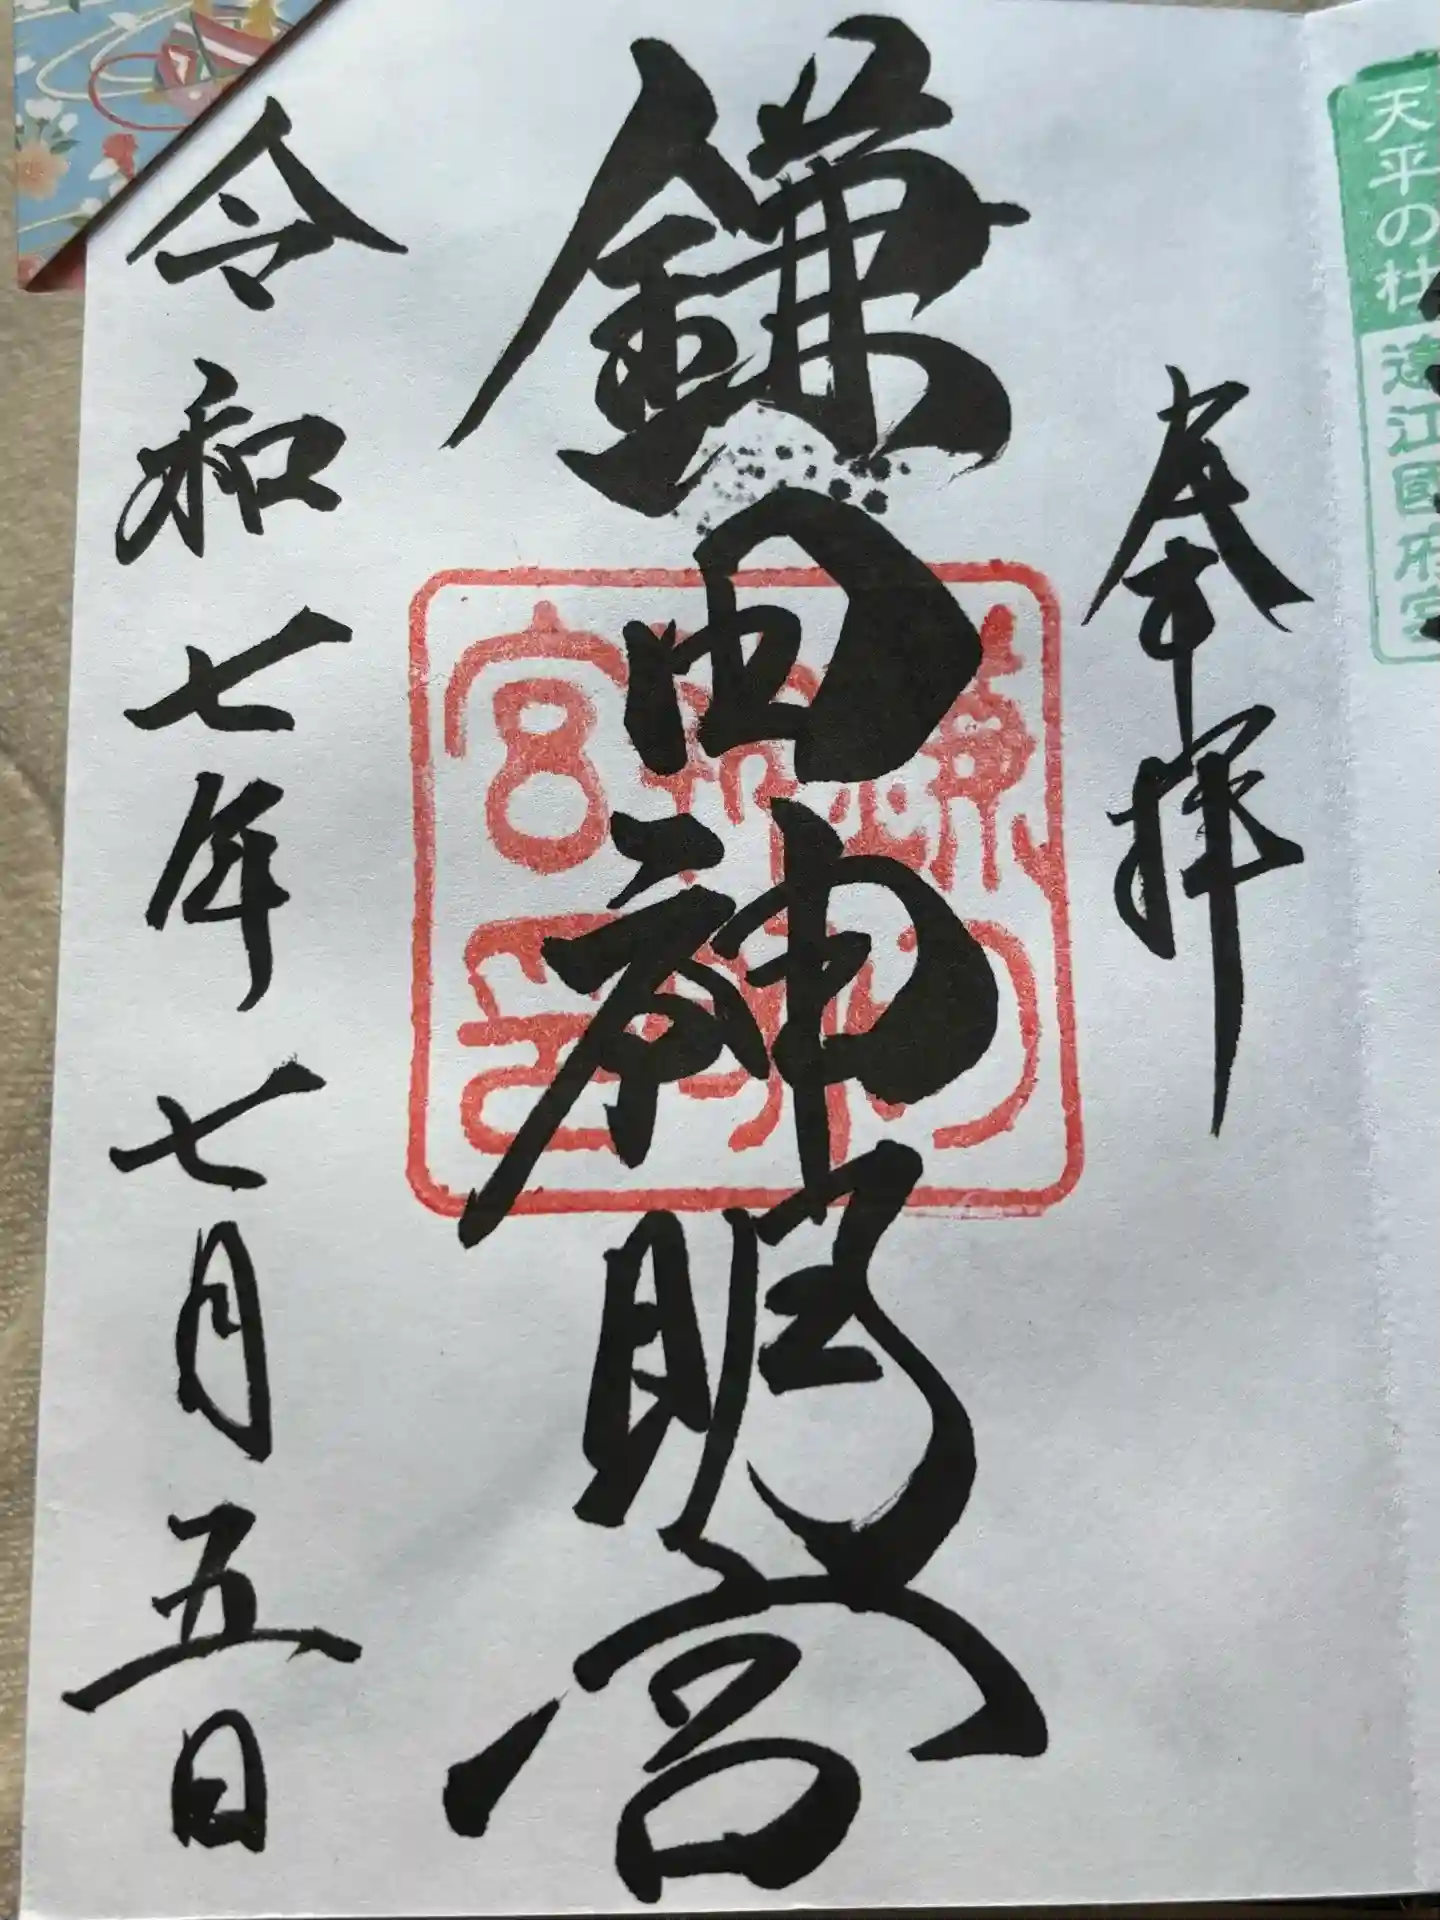 天平の杜 遠江國府宮
奉拝
鎌田神明宮
令和七年七月五日